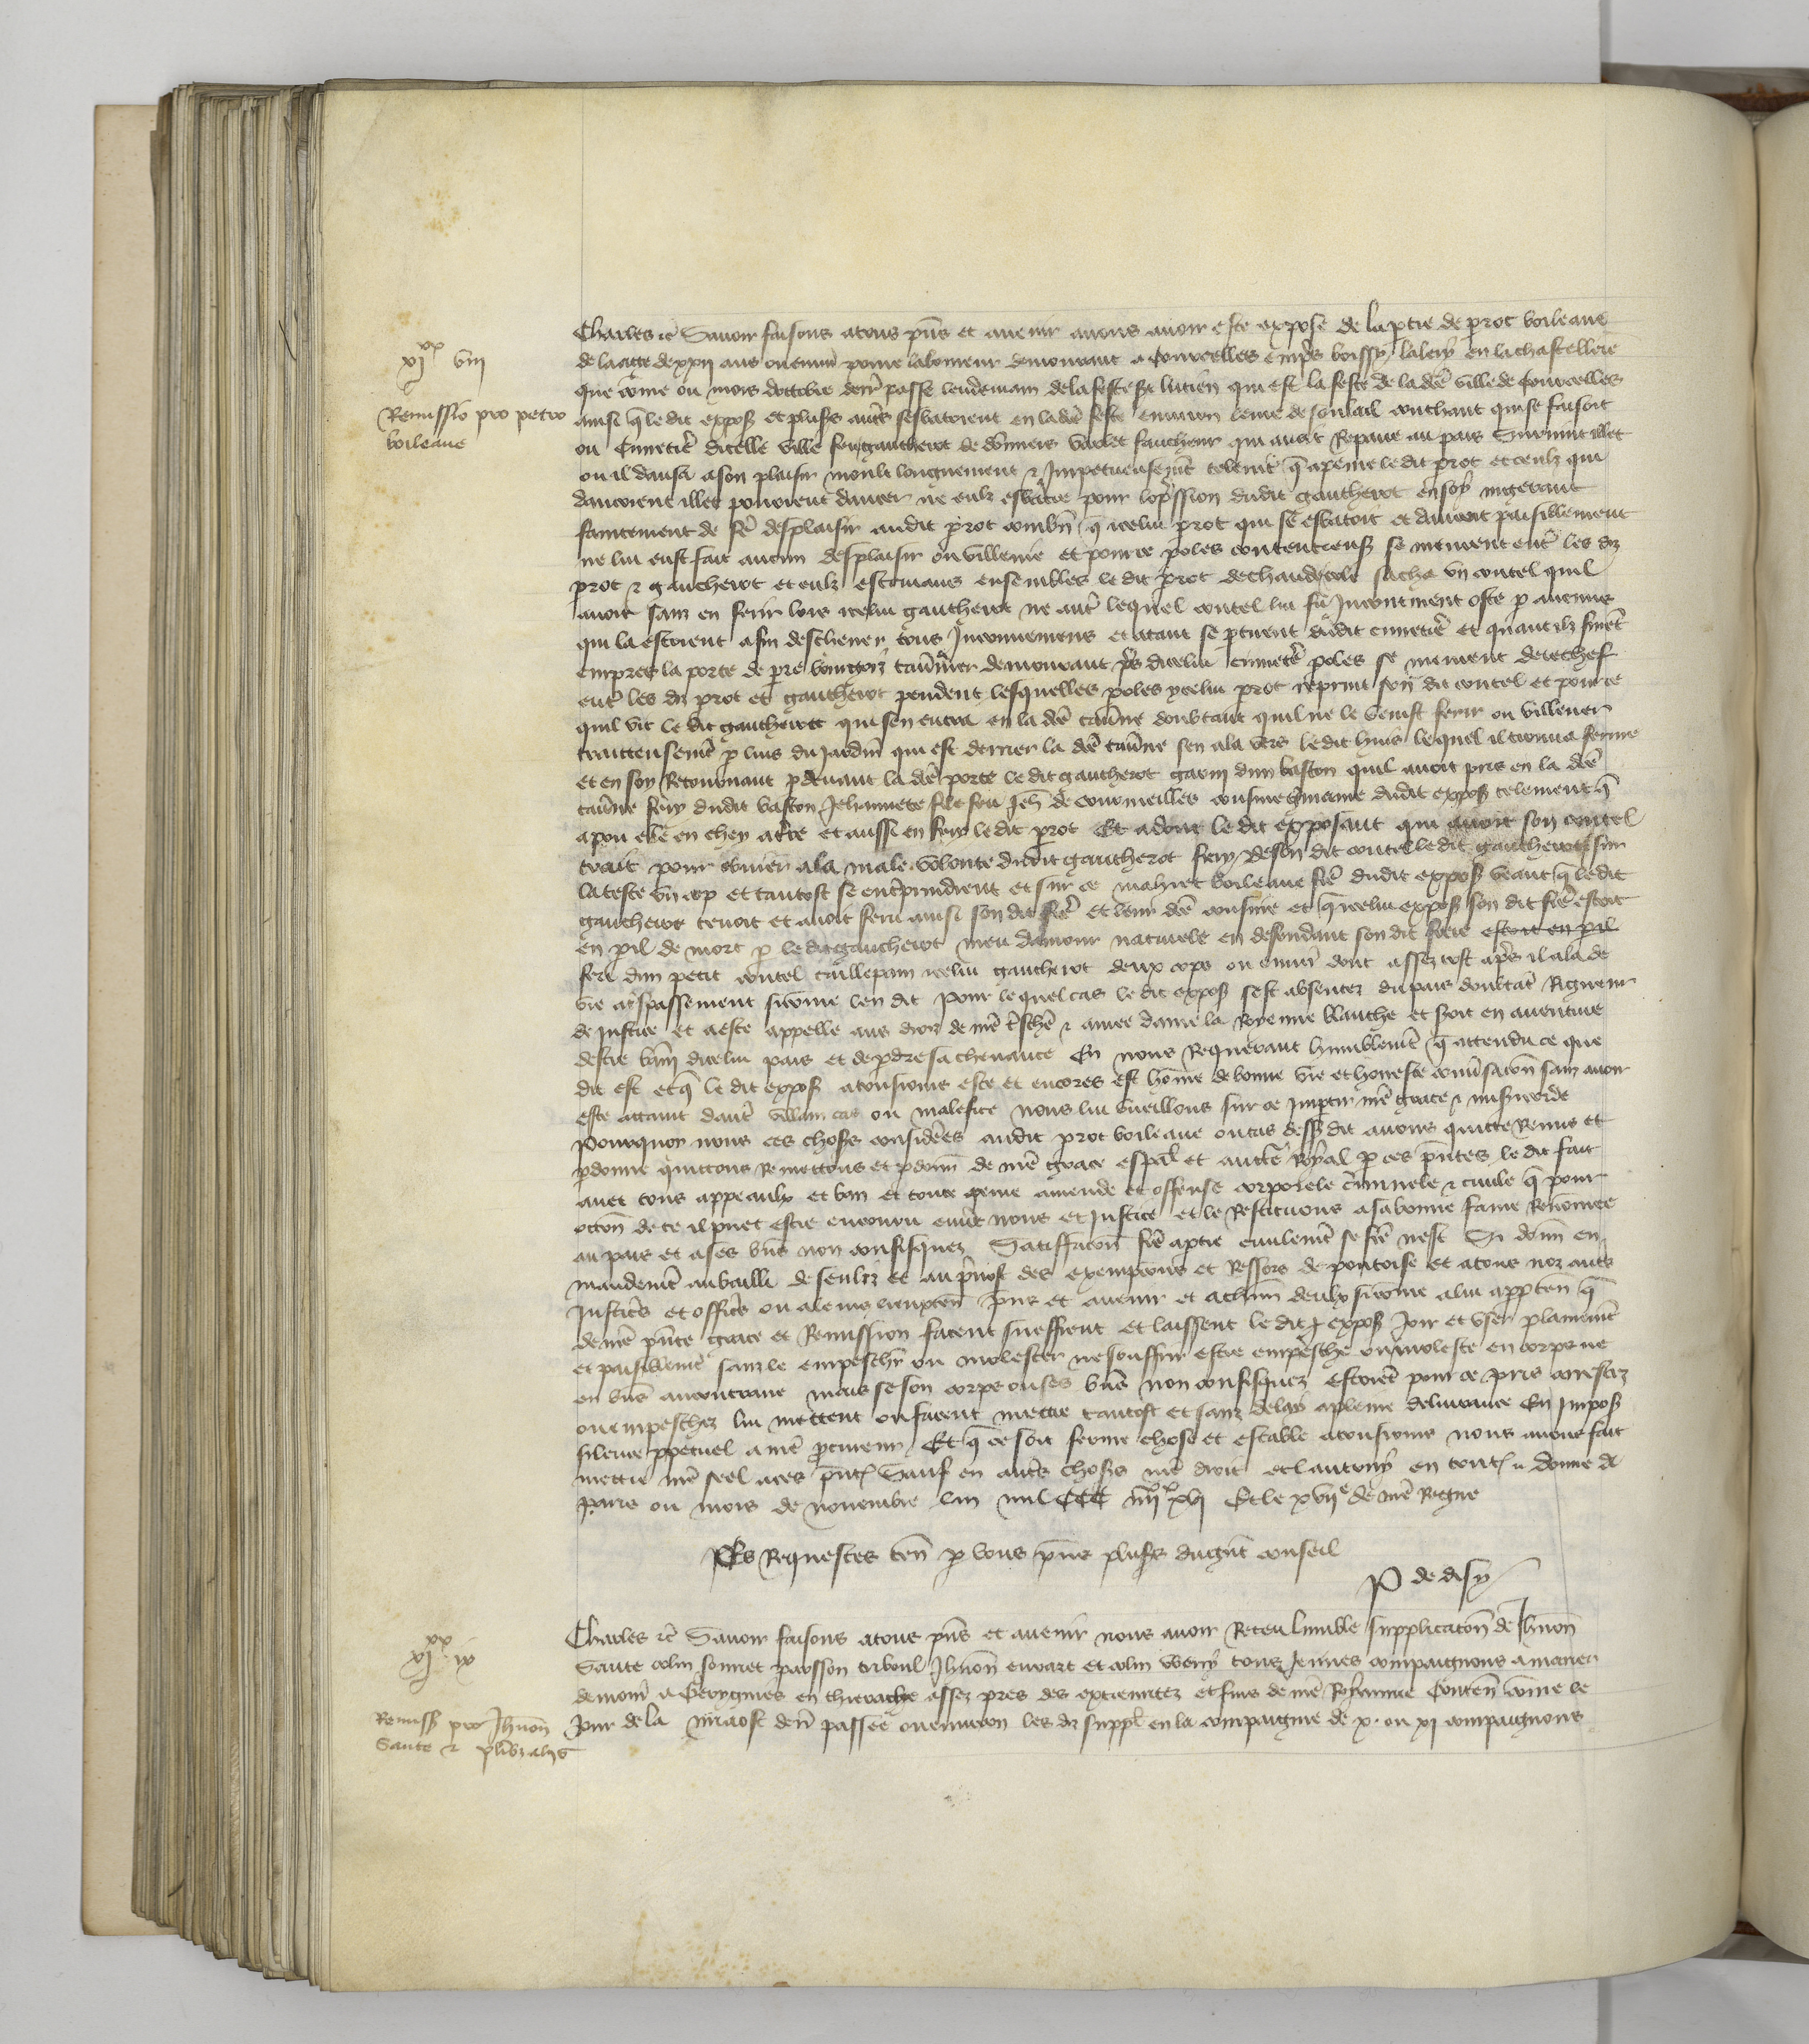 xi xx viii
Remissio pro petro
boileaue
Charles etc Sauoir faisons a tous pns et auenir auons auoir este expose de la ptie de prot boileaue
de laage de xxii ans ou enuiron poure laboureur demourant a Courcelles empres boissy lalery en la chastellerie
que come ou mois doctobre derr passe lendemain de la feste st lucien qui est la feste de la dce ville de Courcelles
ainsi q le dit expos et plusrs autrs sesbatoient en la dce feste enuiron leure de souleil couchant qui se faisoit
ou Cimetiere dicelle ville feu gautherot de varlet faucheur qui auoit Repaire au pais Suruint illec
ou il dansa a son plaisir moult longuement et Impetueusemt telemt q apeine le dit prot et ceulz qui
dancoient illec pouoient dancer ne eulz esbatre pour lopssion dudit gautherot en soy ingerant
faintement de fe desplaisir audit prot combn q icelui prot qui se esbatoit et dancoit paisiblement
ne lui eust fait aucun desplaisir ou villenie et pour ce poles contencieuses se meurent entr les diz
prot et gautherot et eulz estmans ensembles le dit prot de chaude cole sacha un coutel quil
auoit sanz en ferir lors icelui gautherot ne autr lequel coutel lui fu Incontinent oste p aucuns
qui la estoient afin descheuer tous Inconueniens et atant se ptirent dudit cimetiere et quant ilz furet
empres la porte de pre tauernier demourant prs dicelui cimetre poles se murent derechef
entr les diz prot et gautherot pendent lesquelles poles ycelui prot reprint son dit coutel et pource
quil vit le dit gautherot qui sen entra en la dce tauerne doubtant quil ne le venist ferir ou villener
traitteusemt p luis du jardin qui est derrier la dce tauerne sen ala vers le dit huis lequel il trouua ferme
et en soy Retournant p deuant la dce porte le dit gautherot garni dun baston quil auoit pris en la dce
tauerne fery dudit baston Jehannete fille feu Jeh de cormeilles cousine germaine dudit expos telement q
a pou elle en chey a tre et aussi en fery le dit prot Et adont le dit exposant qui auoit son coutel
trait pour obuier a la male volonte dudit gautherot fery de son dit coutel le dit gautherot sur
la teste un cop et tantost se entreprindrent et sur ce mahiet boileaue fre dudit expos veant q le dit
gautherot tenoit et auoit feru ainsi son dit frere et leur dce cousine et q icelui expos son dit frere estoit
en pil de mort p le dit gautherot meu damour naturele en defendant son dit frere estoit en pil
feri dun petit coutel taillepain icelui gautherot deux cops ou enuiron dont assez tost aprs il ala de
vie a trspassement si come len dit Pour lequel cas le dit expos sest absentez du pais doubtant Rigueur
de justice et a este appelle aus droiz de nre treschre et amee dame la Royenne blanche et soit en auenture
destre bany dicelui pais et de pdre sa cheuance En nous Requerant humblemt q attendu ce que
dit est et q le dit expos a tousiours este et encores est home de bonne vie et honeste conuersacion sanz auoir
este attaint dautre villain cas ou malefice nous lui vueillons sur ce Impartir nre grace et misericorde
Pourquoy nous ces choses considerees audit prot boileaue ou cas dessus dit auons quitte Remis et
pdonne quittons Remettons et pdonn de nre grace espal et auctte Royal p ces pntes le dit fait
auec tous appeaulx et ban et toute peine amende et offense corporele criminele et ciuile q pour
occon de ce il puet estre encouru enuers nous et justice et le Restituons a sa bonne fame Renomee
au pais et a ses bns non confisquez Satisfaccon fce a ptie ciuilemt se fce nest Si donn en
mandemt au bailli de senliz et au preuost des exempcons et Ressors de pontoise et a tous noz autrs
justicrs et officrs ou a leurs lieuxten pns et auenir et a chun deulx si come a lui apptendra q
de nre pnte grace et Remission facent sueffrent et laissent le dit expos joir et user plainemt
et paisiblemt sanz le empescher ou molester ne souffrir estre empesche ou moleste en corps ne
en bns aucontraire mais se son corps ou ses bns non confisquez estoient pour ce pris arrestez
ou empeschez lui mettent ou facent mettre tantost et sanz delay a pleine deliurance En Impos
silence ppetuel a nre pcureur Et q ce soit ferme chose et estable a tousiours nous auons fait
mettre nre seel a ces pntes Sauf en autrs choses nre droit et lautruy en toutes donne a
Paris ou mois de nouembre lan mil CCC iiiixx xvi Et le xviie de nre Regne
Es Requestes ten p vous pns plusrs du gnt conseil
P de disy
xi xx ix
Remiss pro Jhnon
Sante et plibz aliis
Charles etc Sauoir faisons a tous pns et auenir nous auoir Receu lumble supplicacon de Jhnon
Sante colin sonnet paosson Jhnon euuart et colin wery tous Jeunes compaignons a marier
demour a en thierache assez pres des extremitez et fins de nre Royaume Conten come le
Jour de la miaost derr passee ou enuiron les diz suppl en la compaignie de x. ou xi compaignons